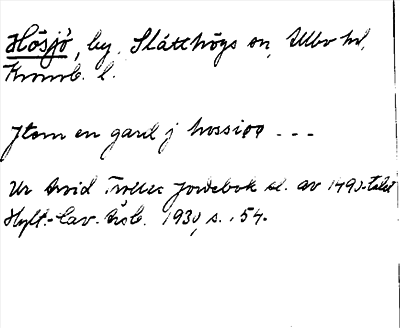 Hösjö, by, Slätthögs sn, Allbo hd,
Kronob. l.
Jtem en gard j hossiøø ---
Ur Arvid Trolles Jordebok sl. av 1490-talet
Hylt.-Cav. årsb. 1930, s. 154.